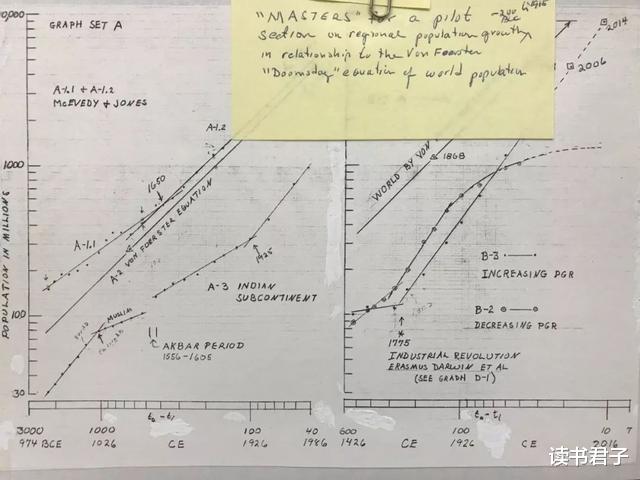 "MASTERS" for a pilot
section on regional population growth
in relationship to the Von Foerster
"Doomsday" equation of world population
10,000
GRAPH SET A
A-1.1 + A-1.2
McEVEDY & JONES
A-1.2
1000
1650
A-1.1
A-2 VON FOERSTER EQUATION
1925
A-3 INDIAN
SUBCONTINENT
POPULATION IN MILLIONS
MUSLIM
100
AKBAR PERIOD
1556-1605
30
3000
1000
100
40
t₀-t₁
974 BCE
1026
CE
1926
1986
2014
2006
WORLD BY VON
1868
B-3
INCREASING PGR
B-2
DECREASING PGR
1775
INDUSTRIAL REVOLUTION
ERASMUS DARWIN ET AL
(SEE GRAPH D-1)
600
100
10
7
t₀-t₁
1426
CE
1926
CE
2016
读书君子